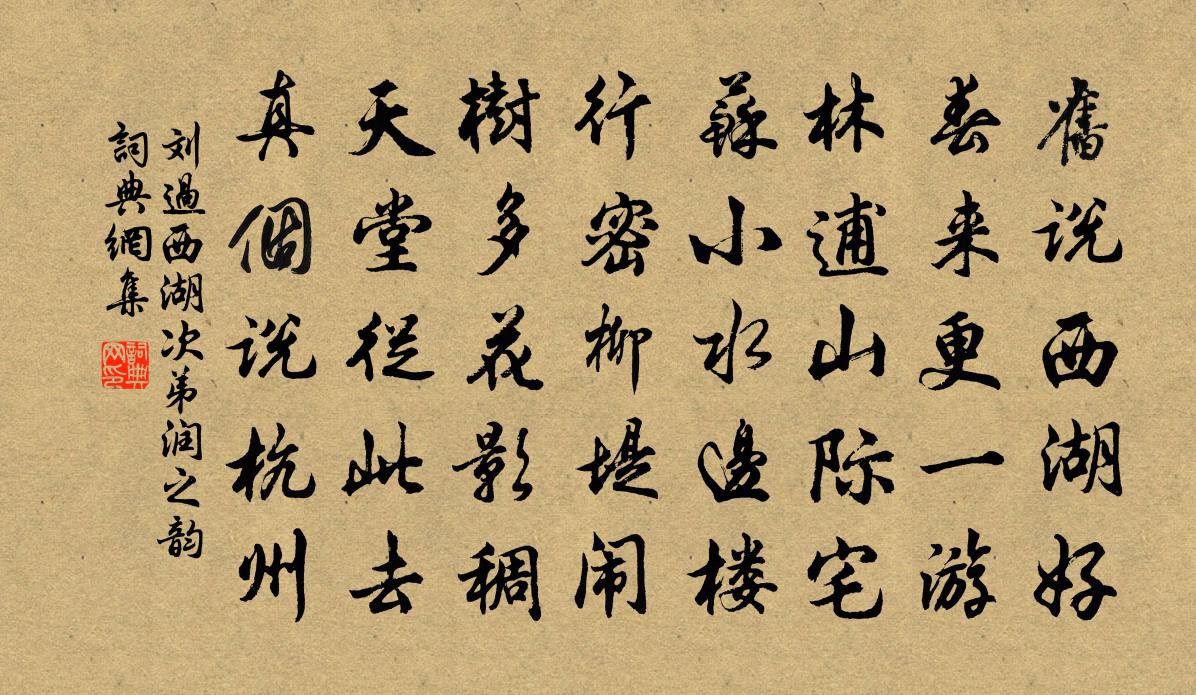 舊说西湖好
春来更一游
林逋山际宅
蘇小水邊楼
行密柳堤闹
樹多花影稠
天堂從此去
真個说杭州
刘過西湖次弟润之韵
詞典網集
詞典网印